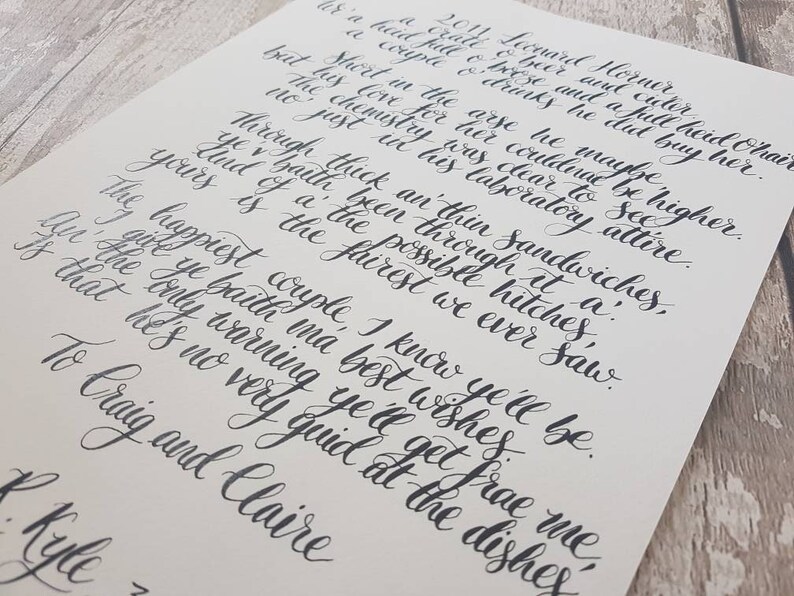 2011, Leonard Horner,
a crate o' beer and cider.
Wi' a heid full o' booze and a full heid O'hair
a couple o' drinks he did buy her.
Short in the arse he maybe
but his love for her couldnae be higher.
The chemistry was clear to see
no' just in his laboratory attire.
Through thick an' thin sandwiches,
ye'v baith been through it a'.
And of a' the possible hitches,
yours is the fairest we ever saw.
The happiest couple, I know ye'll be.
I give ye baith ma best wishes.
An' the only warning ye'll get frae me,
Is that he's no very guid at the dishes,
To Craig and Claire
R. Kyle